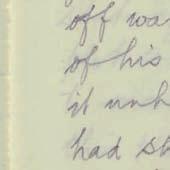 off wa
of his
it unh
had st